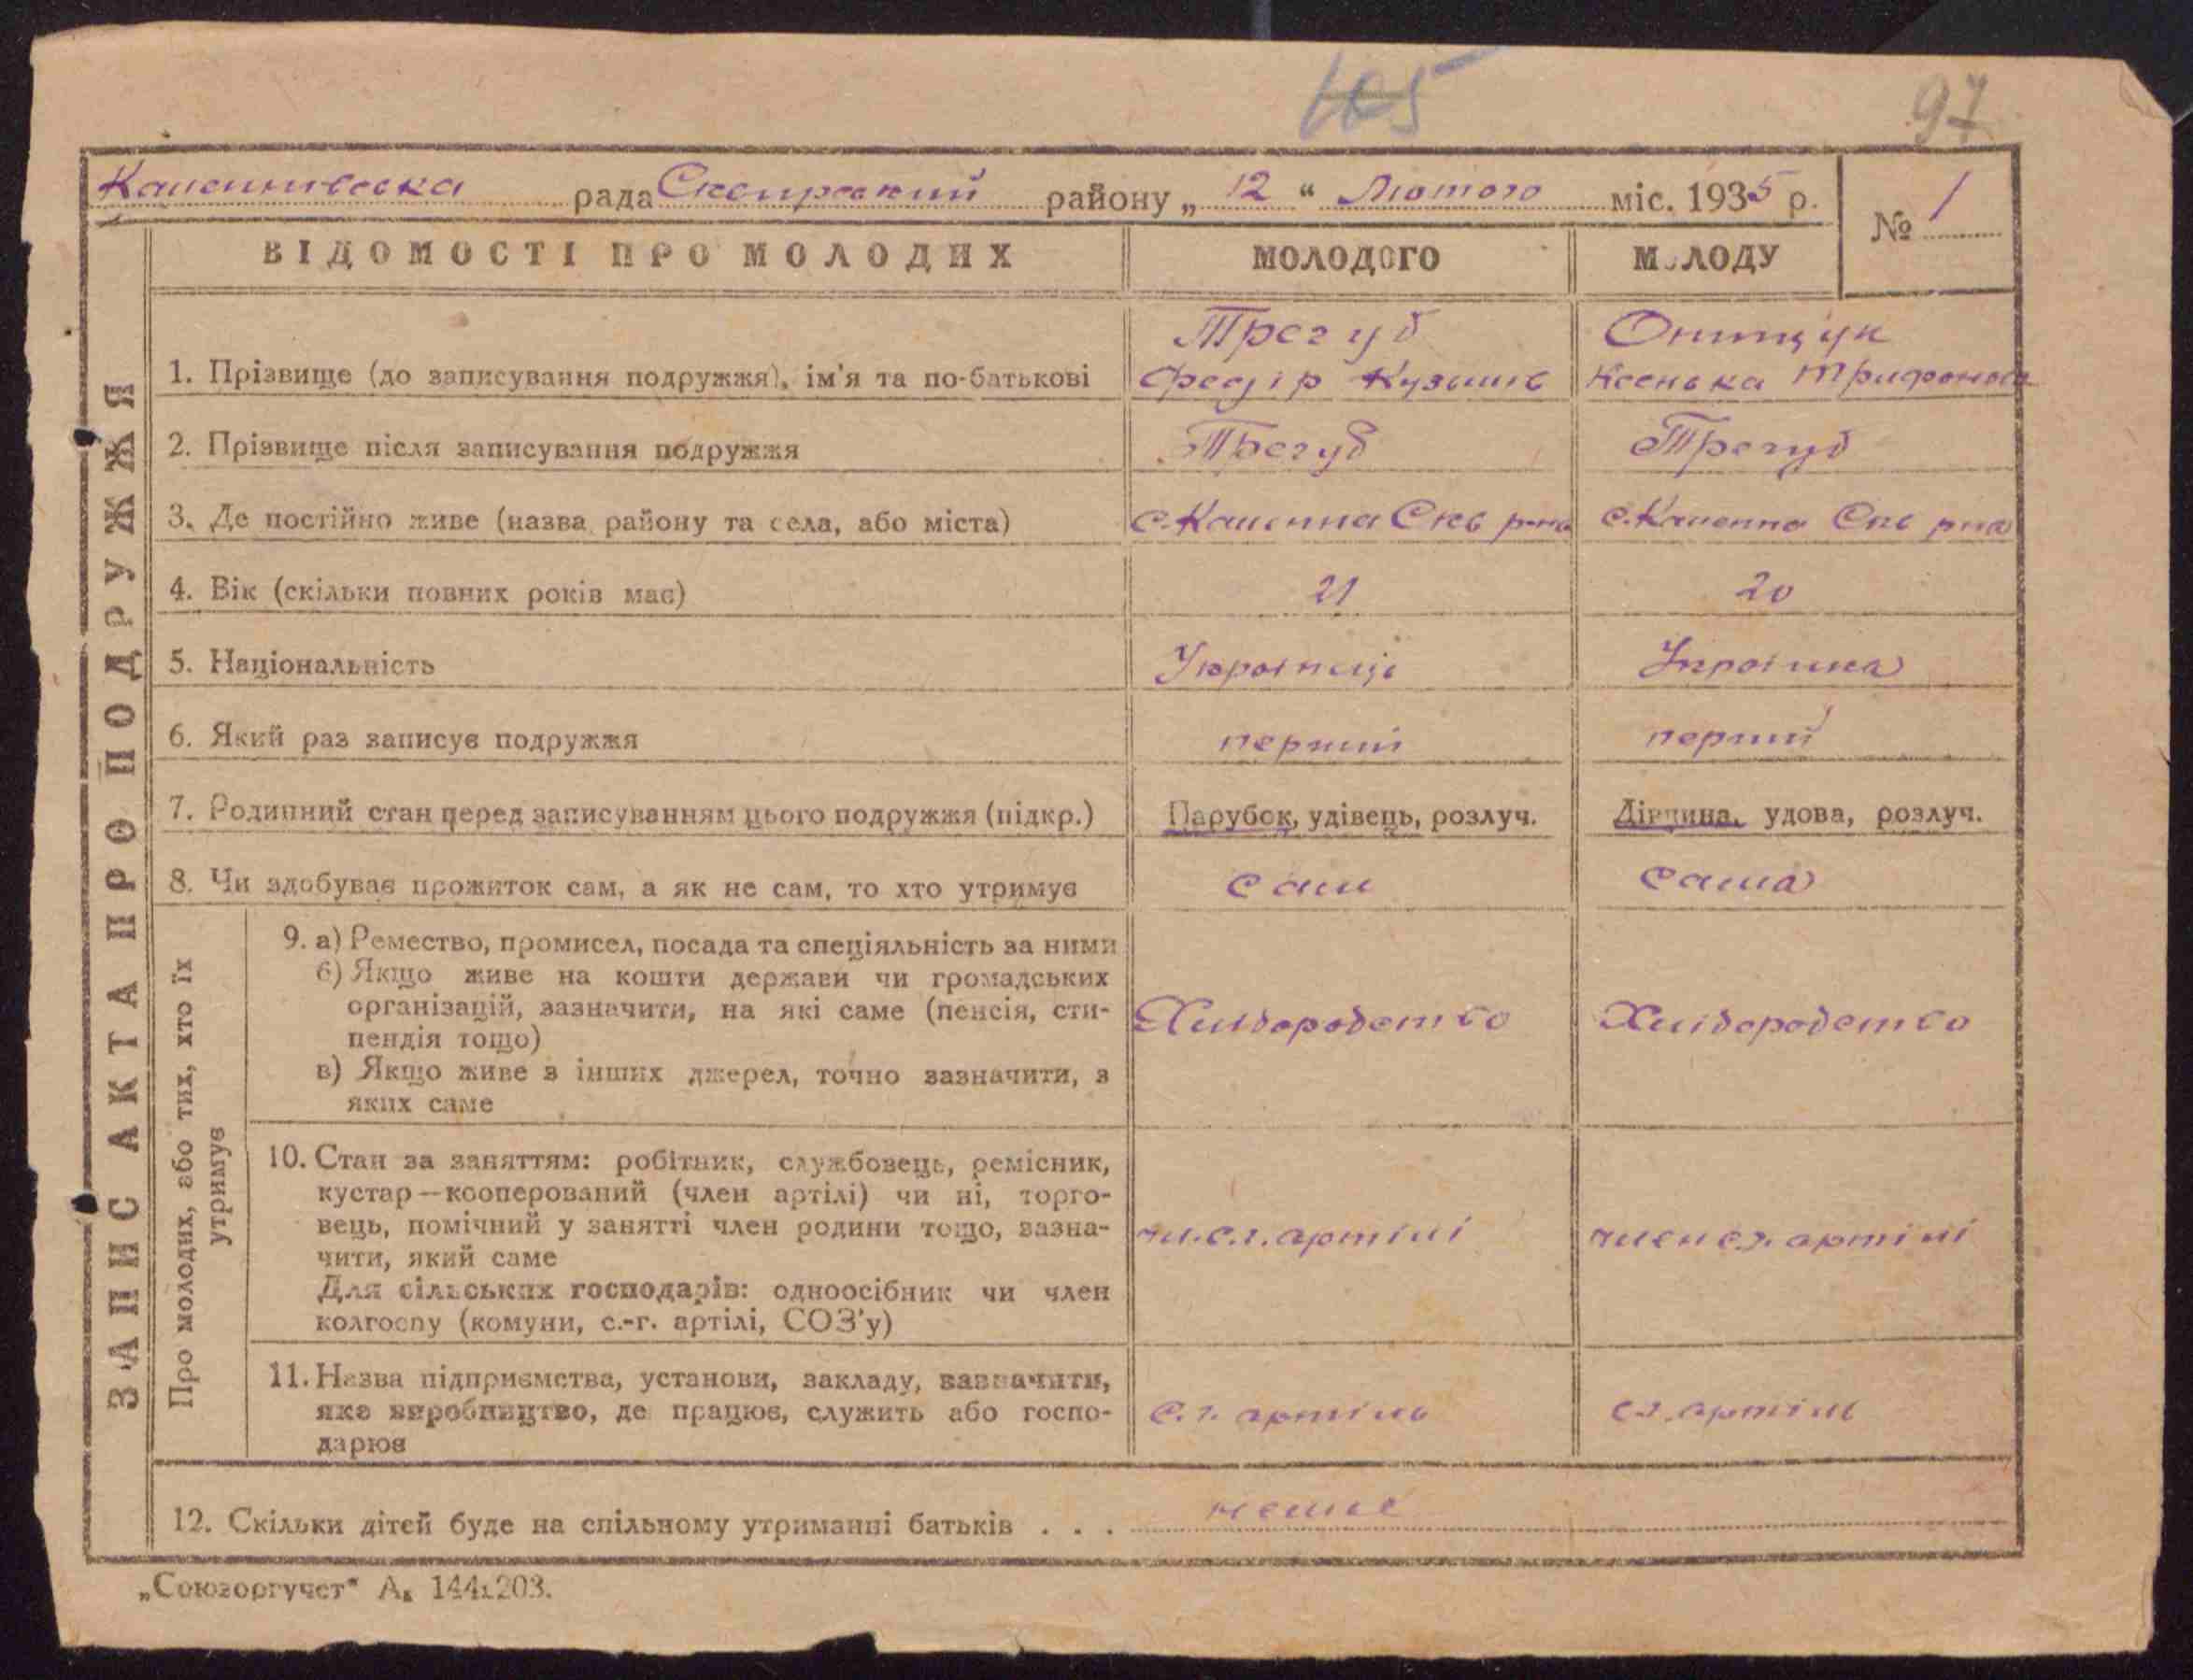 105
97
рада Сквирський району „ 12 “ Лютого міс. 1935 р.
№ 1
ВІДОМОСТІ ПРО МОЛОДИХ
МОЛОДОГО
МОЛОДУ
ЗАПИС АКТА ПРО ПОДРУЖЖЯ
1. Прізвище (до записування подружжя), ім'я та по-батькові
Трегуб
Федір Кузьмив
Онищук
Ксенька Трифонова
2. Прізвище після записування подружжя
Трегуб
Трегуб
3. Де постійно живе (назва району та села, або міста)
с. Каменна Скв р-на
с. Каменна Скв рна
4. Вік (скільки повних років має)
21
20
5. Національність
Українець
Українка
6. Який раз записує подружжя
перший
перший
7. Родинний стан перед записуванням цього подружжя (підкр.)
Парубок, удівець, розлуч.
Дівчина, удова, розлуч.
8. Чи здобуває прожиток сам, а як не сам, то хто утримує
сам
сама
Про молодих, або тих, хто їх
утримує
9. а) Ремество, промисел, посада та спеціяльність за ними
б) Якщо живе на кошти держави чи громадських
організацій, зазначити, на які саме (пенсія, сти-
пендія тощо)
в) Якщо живе з інших джерел, точно зазначити, з
яких саме
Хлідородство
Хлідородство
10. Стан за заняттям: робітник, службовець, ремісник,
кустар — кооперований (член артілі) чи ні, торго-
вець, помічний у занятті член родини тощо, зазна-
чити, який саме
Для сільських господарів: одноосібник чи член
колгоспу (комуни, с.-г. артілі, СОЗ'у)
чл. с.г. артілі
член с.г. артілі
11. Назва підприємства, установи, закладу, зазначити,
яке виробництво, де працює, служить або госпо-
дарює
с.г. артіль
с.г. артіль
12. Скільки дітей буде на спільному утриманні батьків . . .
немає
„Союзоргучет“ А₅ 144х203.